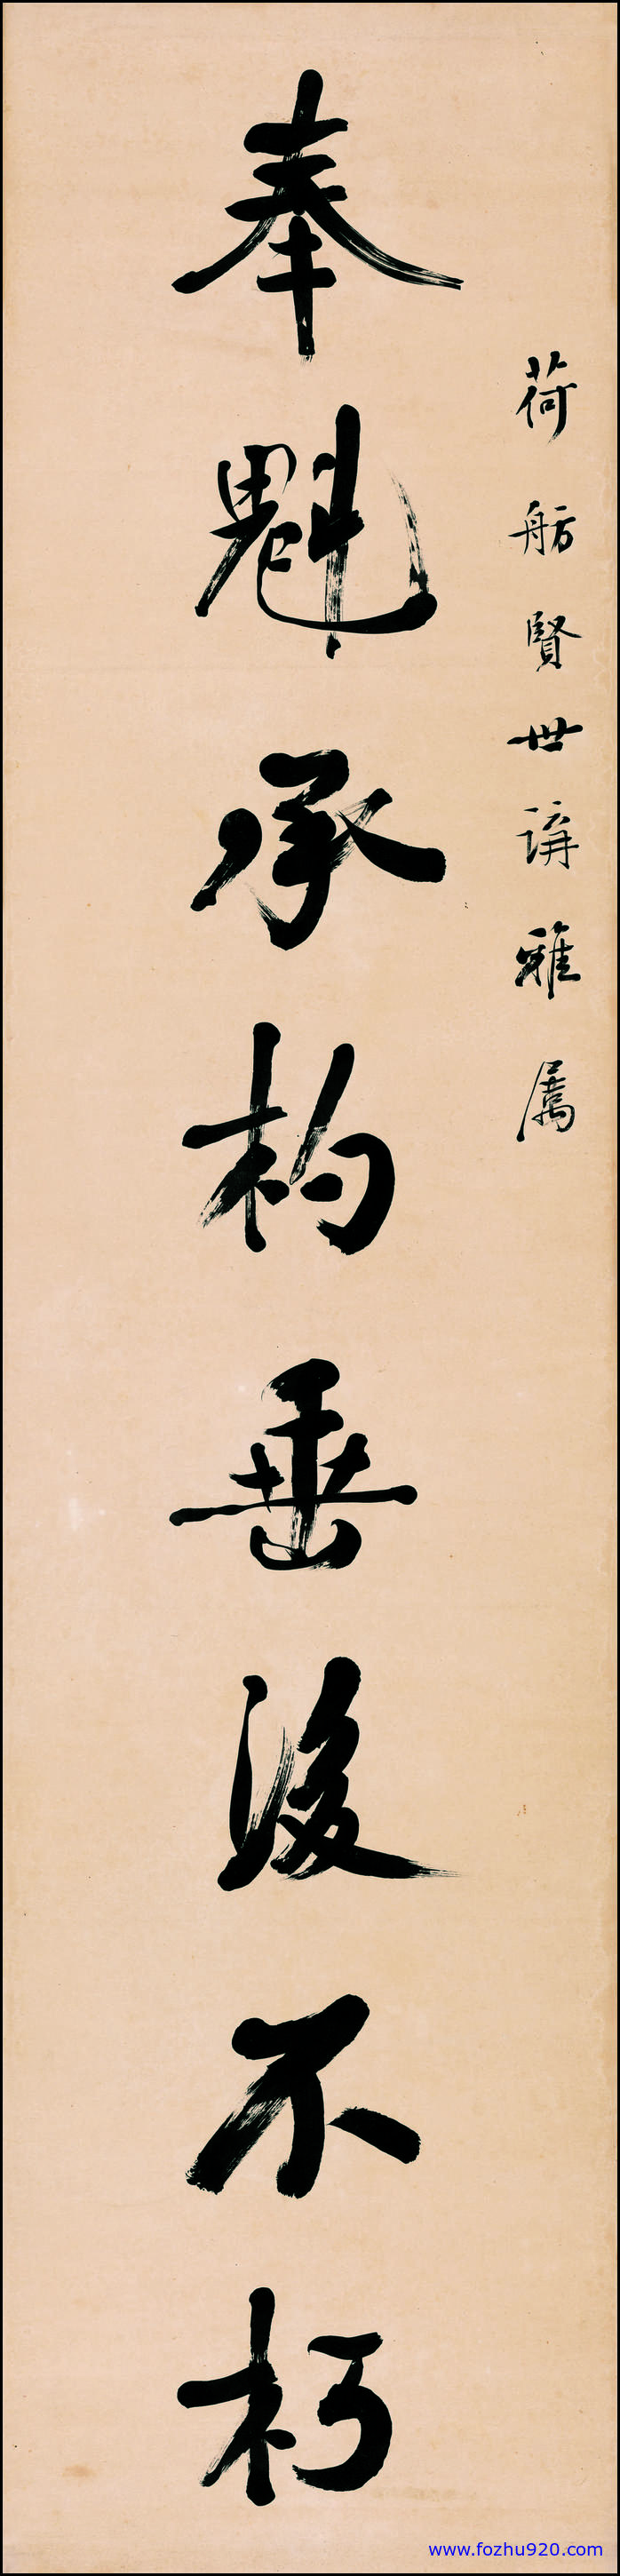 荷舫賢世講雅属
奉魁承杓垂後不朽
www.fozhu920.com